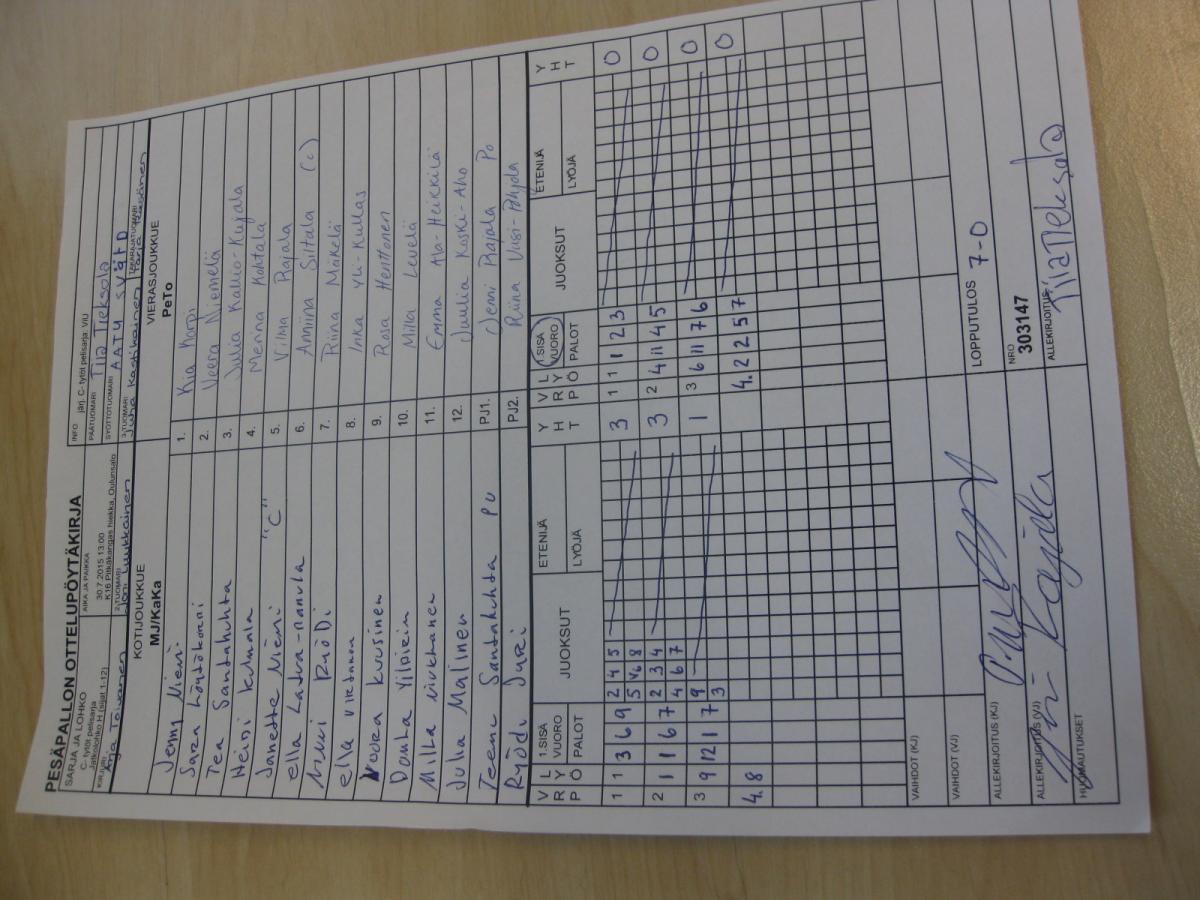 PESÄPALLON OTTELUPÖYTÄKIRJA
SARJA JA LOHKO
C- tytöt pelisarja
Jatkolohko H (sijat 1-12)
AIKA JA PAIKKA
30.7.2015 13:00
K16 Pitkäkangas hiekka, Oulunsalo
INFO järj. C- tytöt pelisarja: VIU
PÄÄTUOMARI Tiia Tieksola
SYÖTTÖTUOMARI AATU SVÄRD
KIRJURI Arja Toivanen
2-TUOMARI Joni Luukkainen
3-TUOMARI Juha Kastikainen
TAKARAJATUOMARI Tarja
KOTIJOUKKUE
MJ/KaKa
VIERASJOUKKUE
PeTo
Jenny Niemi 1. Kia Karpi
Sara Löytökorpi 2. Veera Niemelä
Tea Santahuhta 3. Julia Kallio-Kujala
Heidi Kulmala 4. Menna Kohtala
Janette Niemi "C" 5. Vilma Rajala
ella Latva-rannula 6. Anniina Siltala (c)
Mimi Ryödi 7. Riina Mäkelä
ella virtanen 8. Inka Yli-Kullas
Noora kuusinen 9. Rosa Henttonen
Donha Yildirim 10. Milla Levelä
Milka niukkanen 11. Emma Ala-Heikkilä
Julia Malinen 12. Juulia Koski-Aho
Teene Santahuhta PU PJ1. Jenni Rajala Po
Ryödi Jyri PJ2. Riina Uusi-Pohjola
V R P L Y Ö 1.SISÄ VUORO PALOT JUOKSUT ETENIJÄ LYÖJÄ Y H T V R P L Y Ö 1.SISÄ VUORO PALOT JUOKSUT ETENIJÄ LYÖJÄ Y H T
1 1 3 6 9 2 4 5 3 1 1 1 2 3 0
5 4 6 8
2 1 1 6 7 2 3 4 3 2 4 11 4 5 0
4 6 7
3 9 12 1 7 9 1 3 6 11 7 6 0
3
4. 8 4. 2 2 5 7 0
VAIHDOT (KJ)
VAIHDOT (VJ) LOPPUTULOS 7-0
ALLEKIRJOITUS (KJ) NRO
303147
ALLEKIRJOITUS (VJ) Jyri ALLEKIRJOITUS: Tiia Tieksola
HUOMAUTUKSET